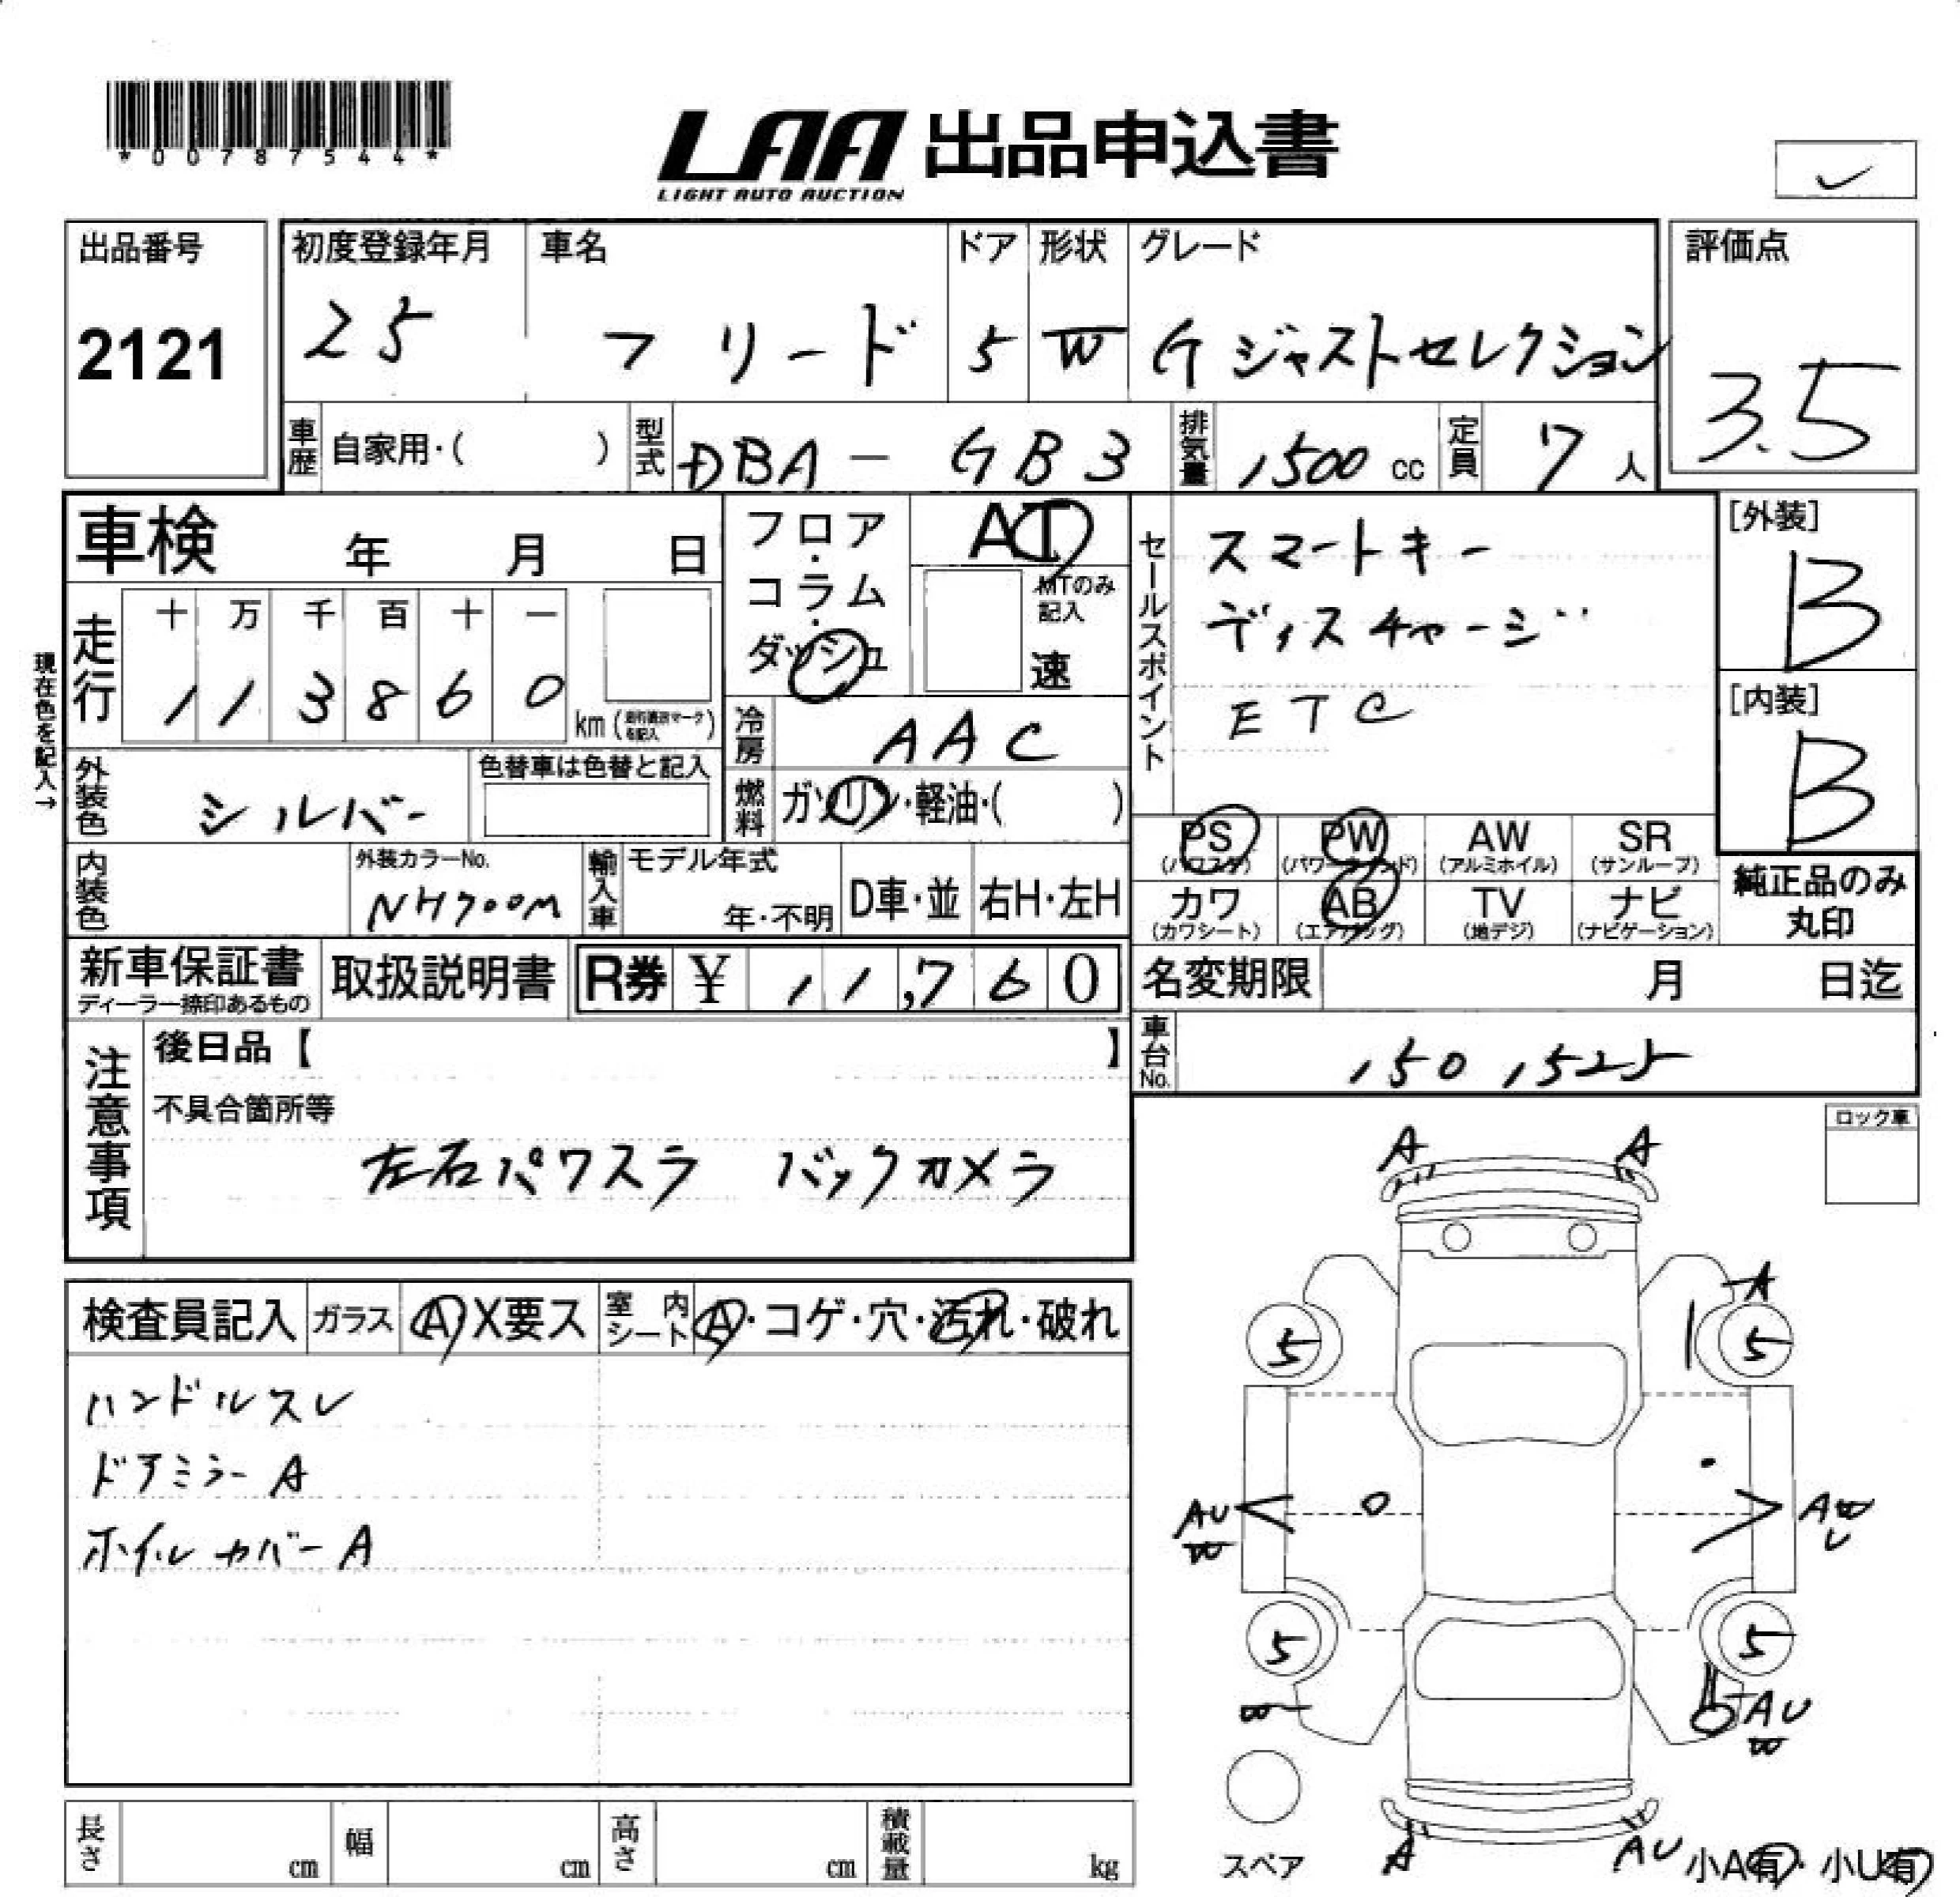 *00787544*
LAA 出品申込書
LIGHT AUTO AUCTION
出品番号
2121
初度登録年月 車名 ドア 形状 グレード
25 フリード 5 W G ジャストセレクション
評価点
3.5
車歴 自家用・( ) 型式 DBA-GB3 排気量 1500 cc 定員 7 人
車検 年 月 日
フロア・コラム・ダッシュ
AT
MTのみ記入
速
セールスポイント
スマートキー
ディスチャージ
ETC
[外装]
B
[内装]
B
現在色を記入→
走行 十 万 千 百 十 一
1 1 3 8 6 0 km
冷房 AAC
外装色 シルバー 色替車は色替と記入
燃料 ガソリン・軽油・( )
PS (パワステ) PW (パワーウインド) AW (アルミホイル) SR (サンルーフ)
カワ (カワシート) AB (エアバッグ) TV (地デジ) ナビ (ナビゲーション)
純正品のみ
丸印
内装色 外装カラーNo. NH700M
輸入車 モデル年式 年・不明 D車・並 右H・左H
新車保証書
ディーラー捺印あるもの
取扱説明書 R券 ¥ 11,760
名変期限 月 日迄
車台No. 1501525
注意事項
後日品【 】
不具合箇所等
左右パワスラ バックカメラ
ロック車
検査員記入 ガラス A X要ス 室内シート A・コゲ・穴・汚れ・破れ
ハンドルスレ
ドアミラーA
ホイルカバーA
A A
A
5 5
AU W AW U
5 5
W AU W
スペア
A AU 小A有・小U有
長さ cm 幅 cm 高さ cm 積載量 kg